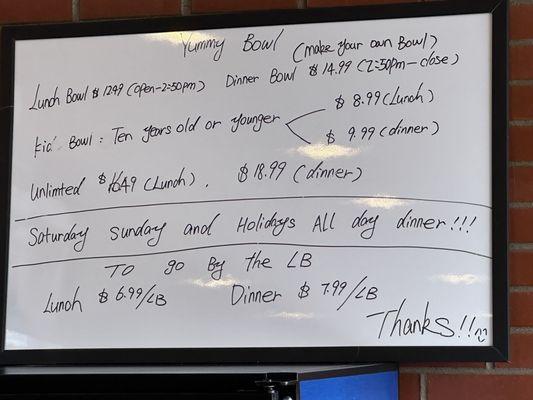 Yummy Bowl (make your own Bowl)
Lunch Bowl $ 12.99 (open-2:50pm) Dinner Bowl $ 14.99 (2:50pm-close)
kid' Bowl: Ten years old or younger
$ 8.99 (Lunch)
$ 9.99 (dinner)
Unlimted $ 16.49 (Lunch). $ 18.99 (dinner)
Saturday Sunday and Holidays All day dinner!!!
TO go By the LB
Lunch $ 6.99/LB Dinner $ 7.99/LB
Thanks!!